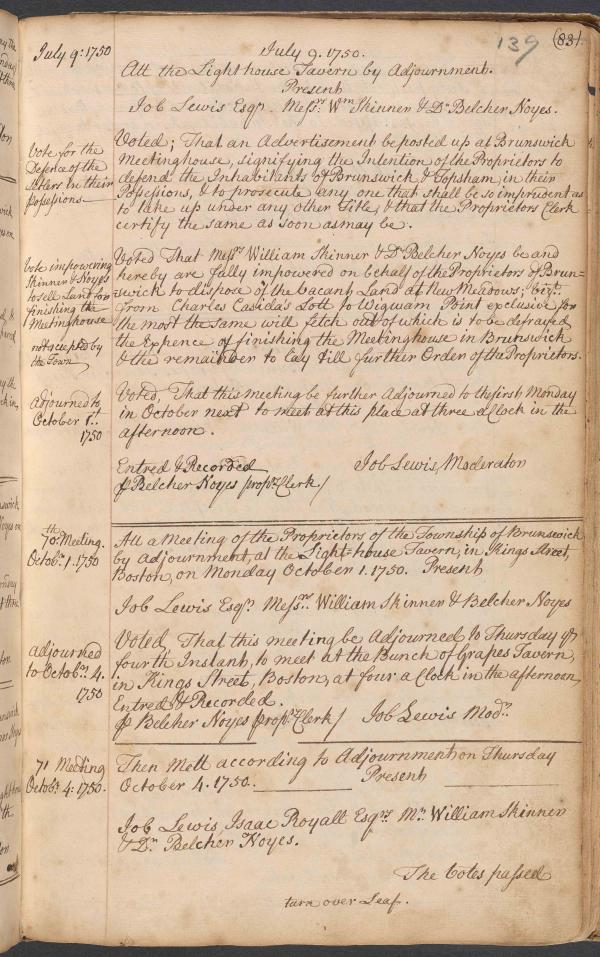 139 (83)
July 9: 1750
July 9. 1750.
Att the Lighthouse Tavern by Adjournment.
Present
Job Lewis Esqr. Messrs. Wm Skinner & Dr Belcher Noyes.
Vote for the
Defence of the
Setlers in their
Possessions
Voted; That an Advertisement be posted up at Brunswick
Meetinghouse, signifying the Intention of the Proprietors to
defend the Inhabitants of Brunswick & Topsham, in their
Possessions, & to prosecute any one that shall be so imprudent as
to take up under any other Title, & that the Proprietors Clerk
certify the same as soon as may be.
Vote impowering
Skinner & Noyes
to sell Land for
finishing the
Meetinghouse
not accepted by
the Town
Voted That Messrs William Skinner & Dr Belcher Noyes be and
hereby are fully impowered on behalf of the Proprietors of Brun=
=swick to dispose of the vacant Land at New Meadows; vizt.
from Charles Casida's Lott to Wigwam Point exclusive for
the most the same will fetch out of which is to be defrayed
the Expence of finishing the Meetinghouse in Brunswick
& the remainder to lay till further Order of the Proprietors.
Adjourned to
October 1st
1750
Voted, That this meeting be further Adjourned to the first Monday
in October next to meet at this place at three a Clock in the
afternoon.
Entred & Recorded
Job Lewis, Moderator
p Belcher Noyes proprs Clerk/
70th Meeting.
Octobr. 1. 1750
Att a Meeting of the Proprietors of the Township of Brunswick
by Adjournment, at the Lighthouse Tavern, in Kings Street,
Boston, on Monday October 1. 1750. Present
Job Lewis Esqr. Messrs. William Skinner & Belcher Noyes
adjourned
to Octobr. 4.
1750
Voted, That this meeting be Adjourned to Thursday ye
fourth Instant, to meet at the Bunch of Grapes Tavern,
in Kings Street, Boston, at four a Clock in the afternoon,
Entred & Recorded.
p Belcher Noyes proprs Clerk/ Job Lewis Modr.
71 Meeting
Octobr. 4: 1750.
Then Mett according to Adjournment on Thursday
October 4. 1750. Present
Job Lewis, Isaac Royall Esqrs. Mr. William Skinner
& Dr. Belcher Noyes.
The Votes passed
turn over Leaf.